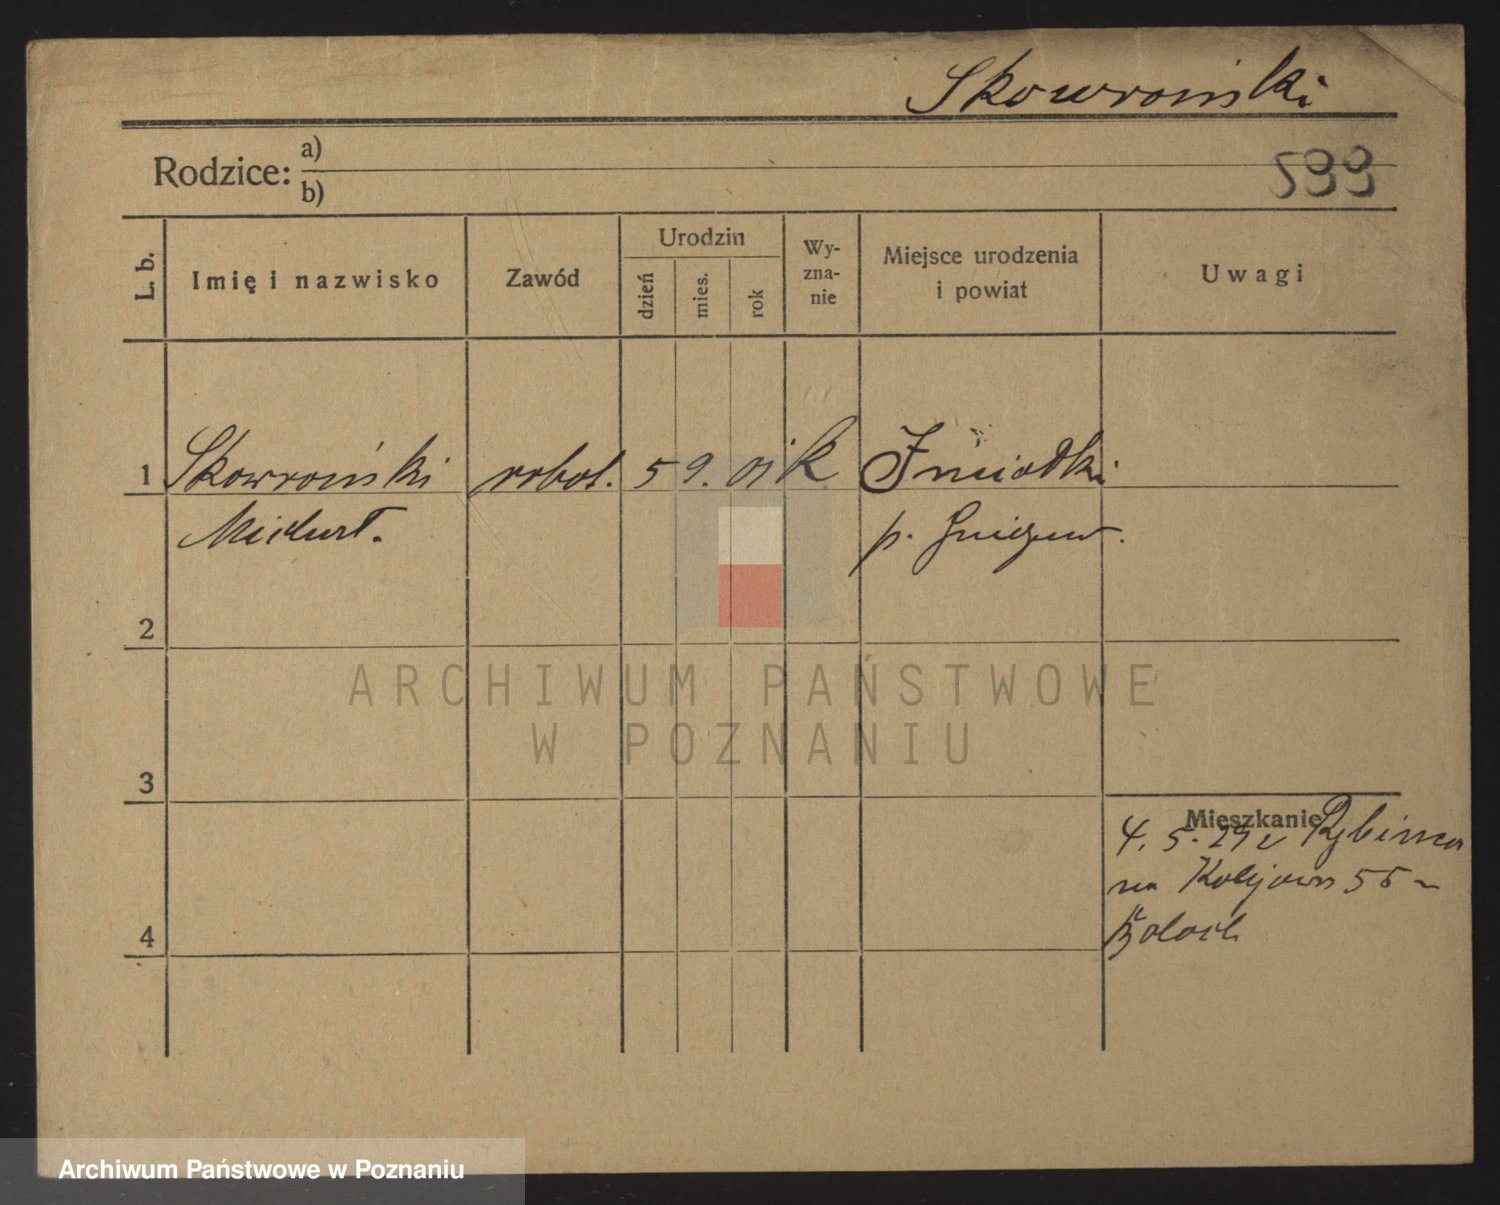 Skowroński
Rodzice: a)
b)
599
L. b.
Imię i nazwisko
Zawód
Urodzin
dzień
mies.
rok
Wy-
zna-
nie
Miejsce urodzenia
i powiat
Uwagi
1 Skowroński robot. 5 9. 01 k
p.
2
3
4
Mieszkanie
4. 5. 29 z
na 55
ARCHIWUM PAŃSTWOWE
W POZNANIU
Archiwum Państwowe w Poznaniu